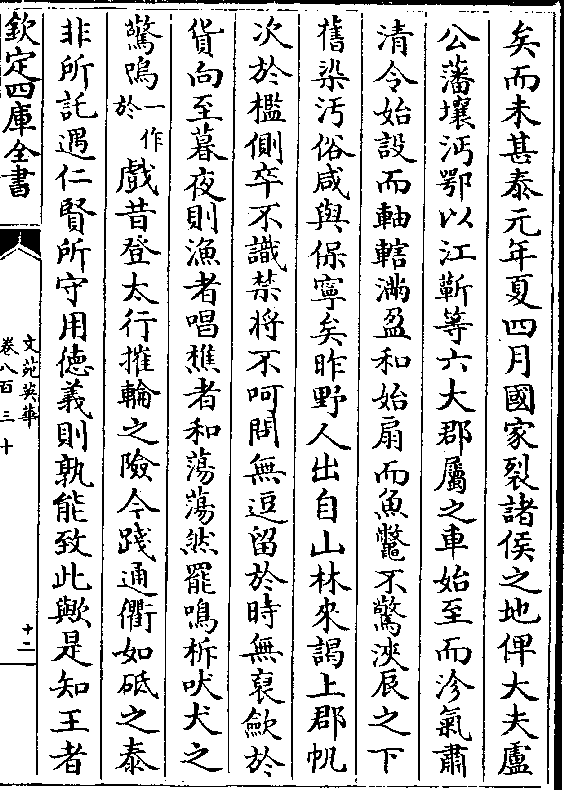 矣而未甚泰元年夏四月國家裂諸侯之地俾大夫盧
公藩壤沔鄂以江蘄等六大郡屬之車始至而沴氣肅
清令始設而軸轄滿盈和始扇而魚鼈不驚浹辰之下
舊染汚俗咸與保寧矣昨野人出自山林來謁上郡帆
次於檻側卒不識禁將不呵問無逗留於時無裒歛於
貨向至暮夜則漁者唱樵者和蕩蕩然罷鳴柝吠犬之
驚嗚一作於戲昔登太行摧輪之險今踐通衢如砥之泰
非所託遇仁賢所守用徳義則孰能致此歟是知王者
欽定四庫全書
文苑英華
卷八百三十
十二